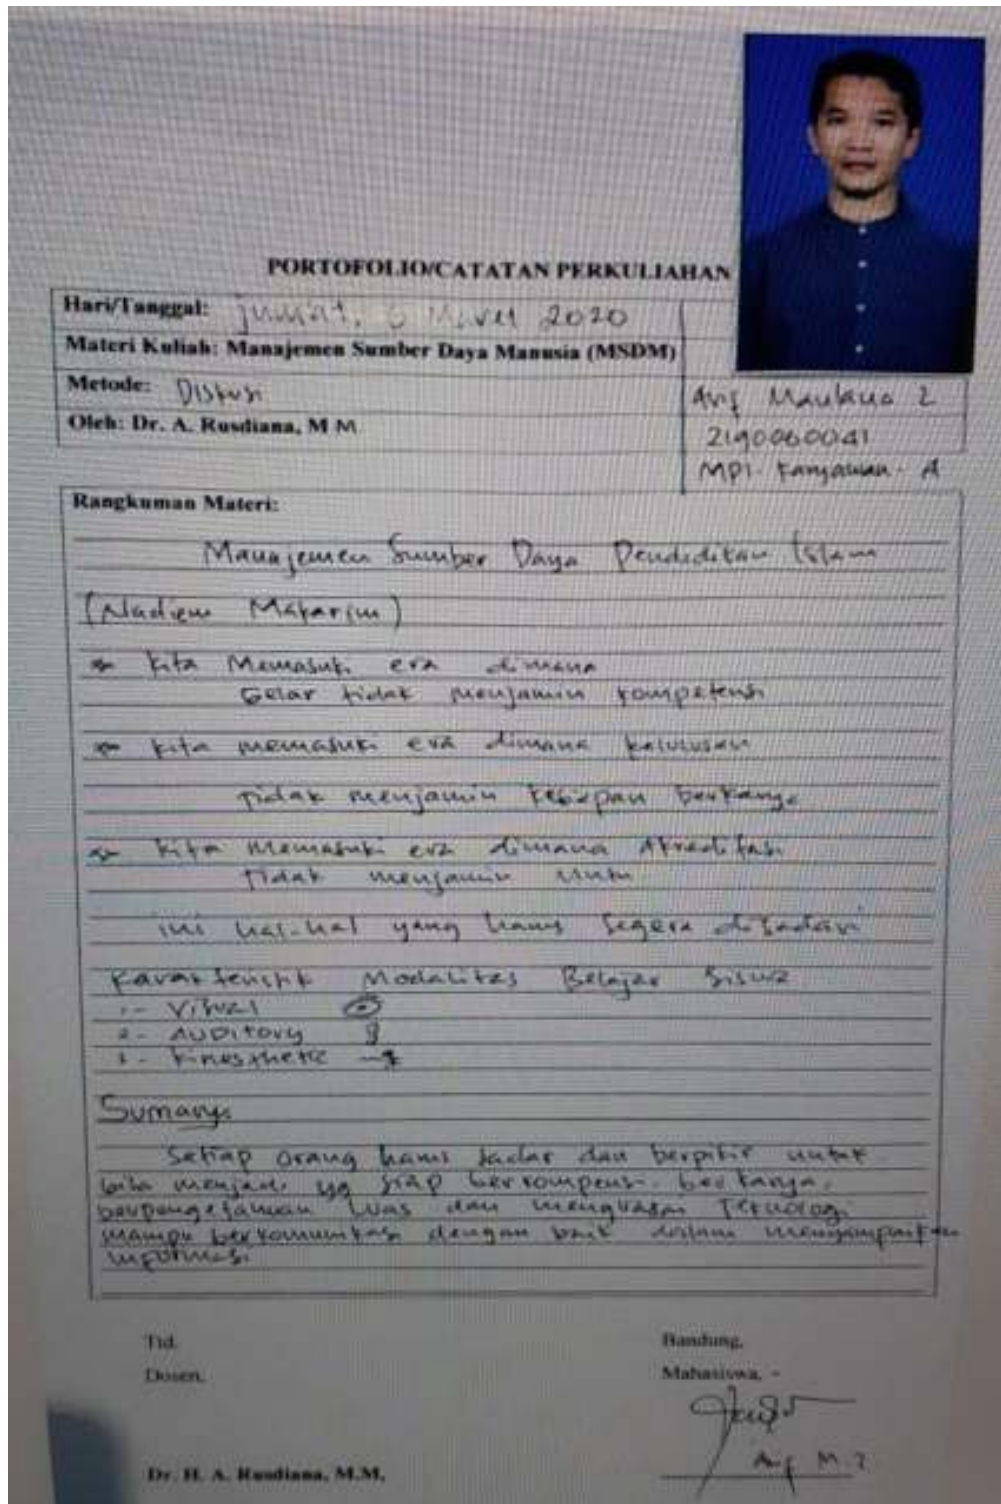 PORTOFOLIO/CATATAN PERKULIAHAN
Hari/Tanggal: Jum'at, 6 Maret 2020
Materi Kuliah: Manajemen Sumber Daya Manusia (MSDM)
Metode: Diskusi
Oleh: Dr. A. Rusdiana, M M
Arif Maulana Z
2190060041
MPI - Karyawan - A
Rangkuman Materi:
Manajemen Sumber Daya Pendidikan Islam
(Nadiem Makarim)
kita Memasuki era dimana
Gelar tidak menjamin kompetensi
kita memasuki era dimana kelulusan
tidak menjamin kesiapan berkarya
kita memasuki era dimana Akreditasi
tidak menjamin mutu
ini hal-hal yang harus segera disadari
Karakteristik Modalitas Belajar Siswa
1- Visual
2- AUDITORY
3- Kinesthetic
Sumary
Setiap orang harus sadar dan berpikir untuk
bisa menjadi yg siap berkompensi. berkarya,
berpengetahuan luas dan menguasai Teknologi
mampu berkomunikasi dengan baik dalam menyampaikan
informasi
Ttd.
Dosen,
Dr. H. A. Rusdiana, M.M,
Bandung,
Mahasiswa, -
Arif M. Z